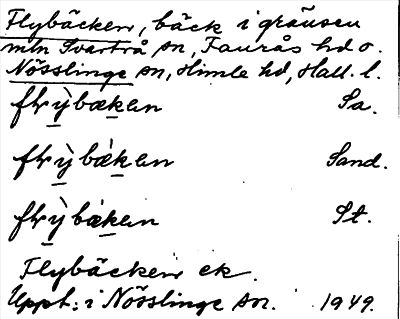 Flybäcken, bäck i gränsen
mln Svartrå sn, Faurås hd o.
Nösslinge sn, Himle hd, Hall. l.
flỳbækan Sa.
flỳbækan Sand.
flỳbækan St.
Flybäcken ek.
Uppt: i Nösslinge sn. 1949.